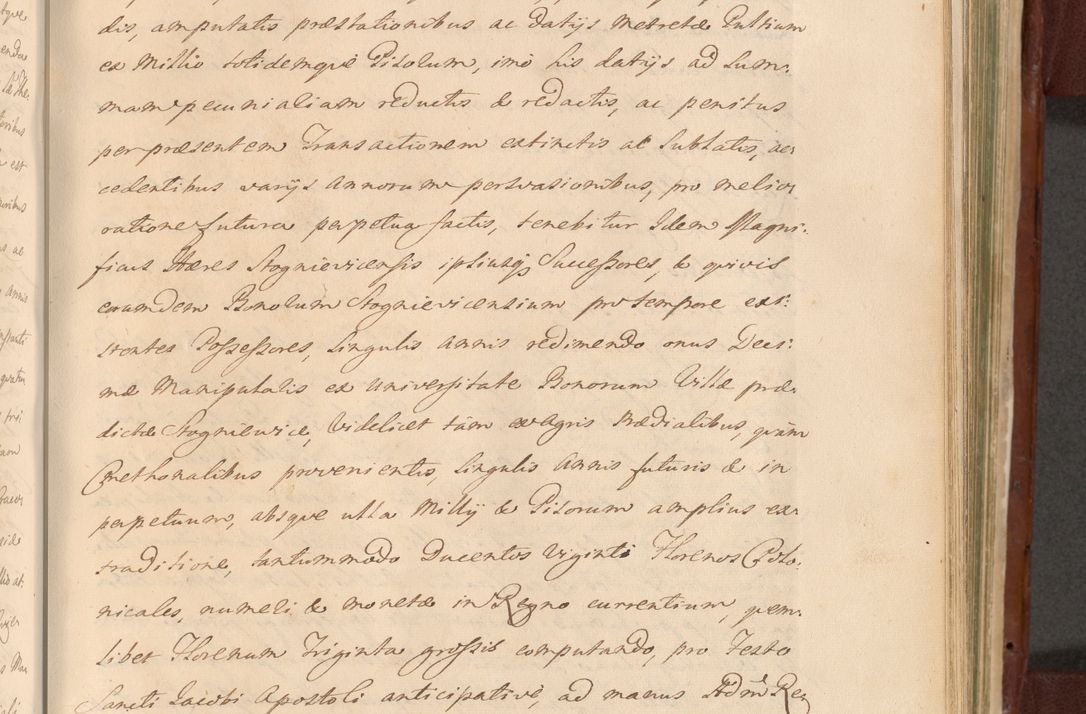 dis, amputatis præstationibus ac datijs Metretæ Pultium
ex Millio totidemque Pisolum, imò his datijs ad Sum:
mam pecunialiam reductis & redactis, ac penitus
per præsentem Transactionem extinctis ac Sublatis, ac:
cedentibus varijs Annorum persvasionibus, pro melio:
ratione futura perpetua factis, tenebitur Idem Magni:
ficus Hæres Stognievicensis ipsiusq; Successores, & quivis
eorumdem Bonolum Stognievicensium pro tempore exi:
stentes Possessores, Singulis Annis redimendo onus Deci:
mæ Manipulalis ex Universitate Bonorum Villæ præ:
dictæ Stogniewice, Videlicet tàm ex Agris Prædialibus, quàm
Cmethonalibus provenientis, Singulis Annis futuris & in
perpetuum, absque ulla Millij & Pisorum amplius ex:
traditione, tantummodo Ducentos Viginti Florenos Polo:
nicales, numeli & monetæ in Regno currentium, quem:
libet Florenum Triginta grossis computando, pro Festo
Sancti Jacobi Apostoli anticipativè, ad manus Adm Re: